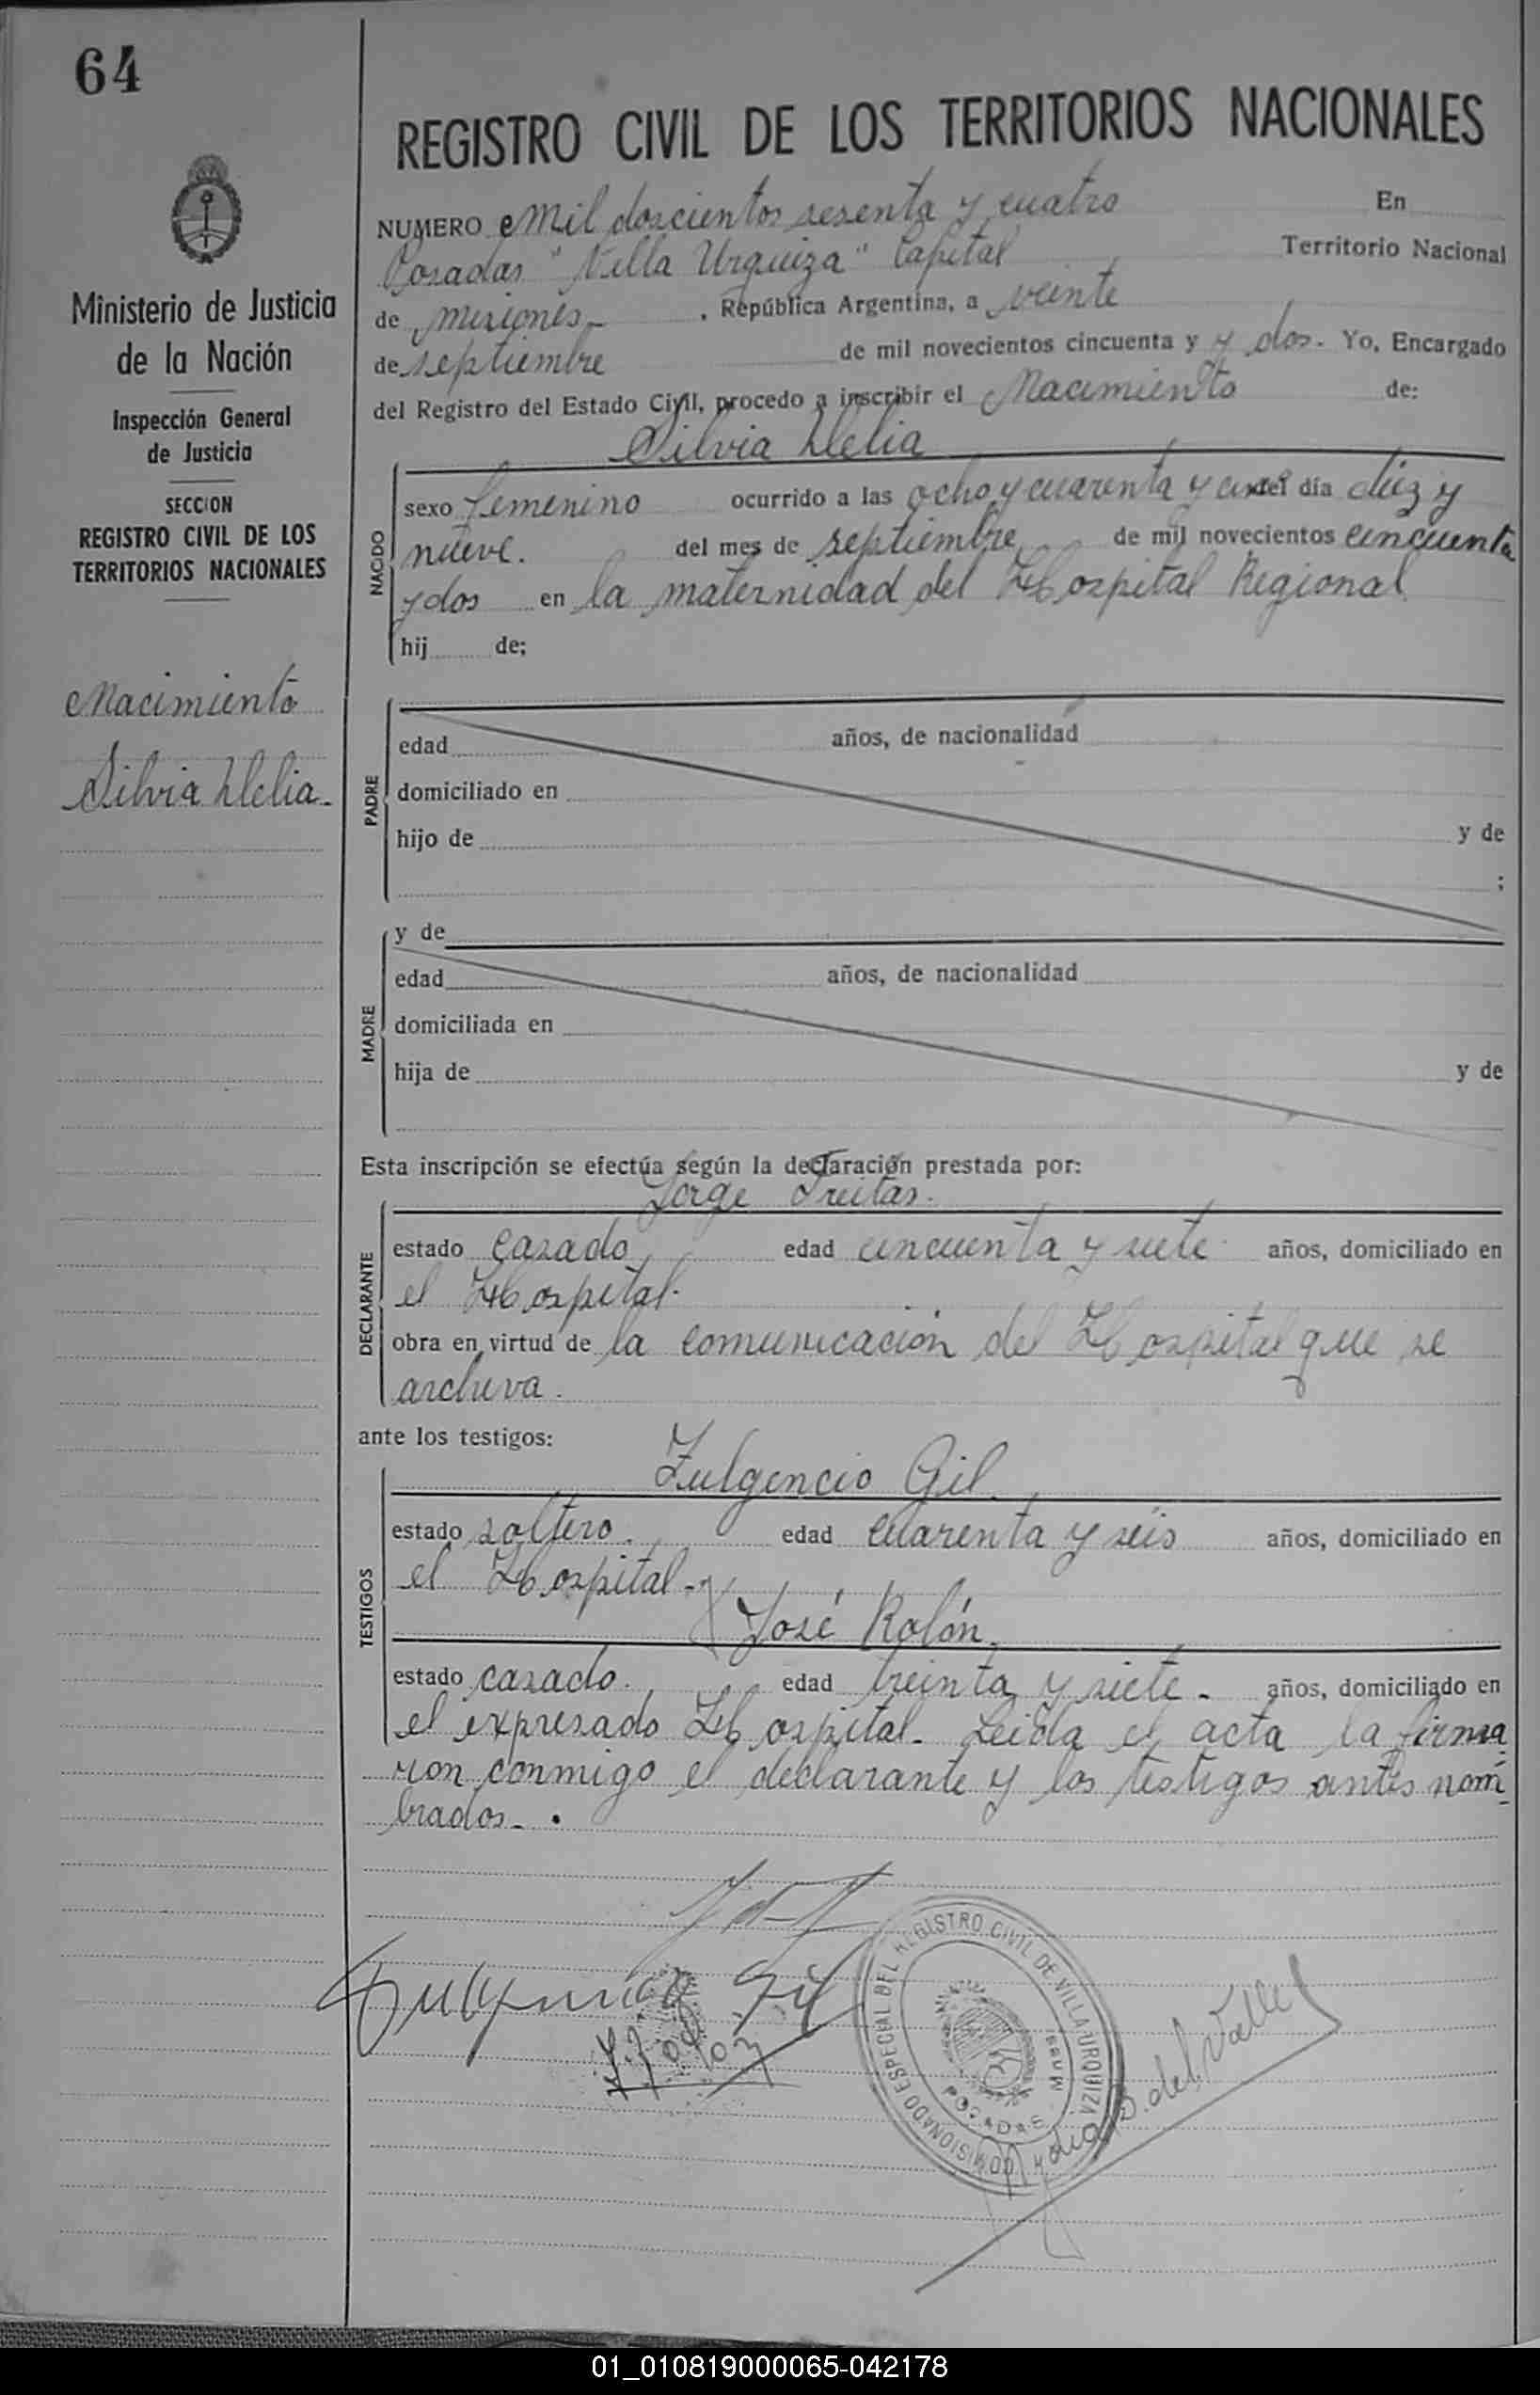 64
REGISTRO CIVIL DE LOS TERRITORIOS NACIONALES
NUMERO Mil doscientos sesenta y cuatro En
Posadas "Villa Urquiza" Capital Territorio Nacional
de Misiones.- , República Argentina, a veinte
de septiembre de mil novecientos cincuenta y y dos. Yo, Encargado
del Registro del Estado Civil, procedo a inscribir el Nacimiento de:
Silvia Delia
Ministerio de Justicia
de la Nación
Inspección General
de Justicia
SECCION
REGISTRO CIVIL DE LOS
TERRITORIOS NACIONALES
Nacimiento
Silvia Delia.-
NACIDO
sexo femenino ocurrido a las ocho y cuarenta y del día diez y
nueve. del mes de septiembre de mil novecientos cincuenta
y dos en la maternidad del Hospital Regional
hij de;
PADRE
edad años, de nacionalidad
domiciliado en
hijo de y de
;
MADRE
y de
edad años, de nacionalidad
domiciliada en
hija de y de
Esta inscripción se efectúa según la declaración prestada por:
Jorge Freitas.
DECLARANTE
estado casado edad cincuenta y siete años, domiciliado en
el Hospital.
obra en virtud de la comunicación del Hospital que se
archiva.
ante los testigos:
Fulgencio Gil.
TESTIGOS
estado soltero. edad cuarenta y seis años, domiciliado en
el Hospital.- y
José Rolón.
estado casado. edad treinta y siete.- años, domiciliado en
el expresado Hospital.- Leida el acta la firma
ron conmigo el declarante y los testigos antes nom-
brados.- .
Fulgencio Gil
J. Rolon
COMISIONADO ESPECIAL DEL REGISTRO CIVIL DE VILLA URQUIZA
POSADAS
Mnes
S. del Valle
01_010819000065-042178